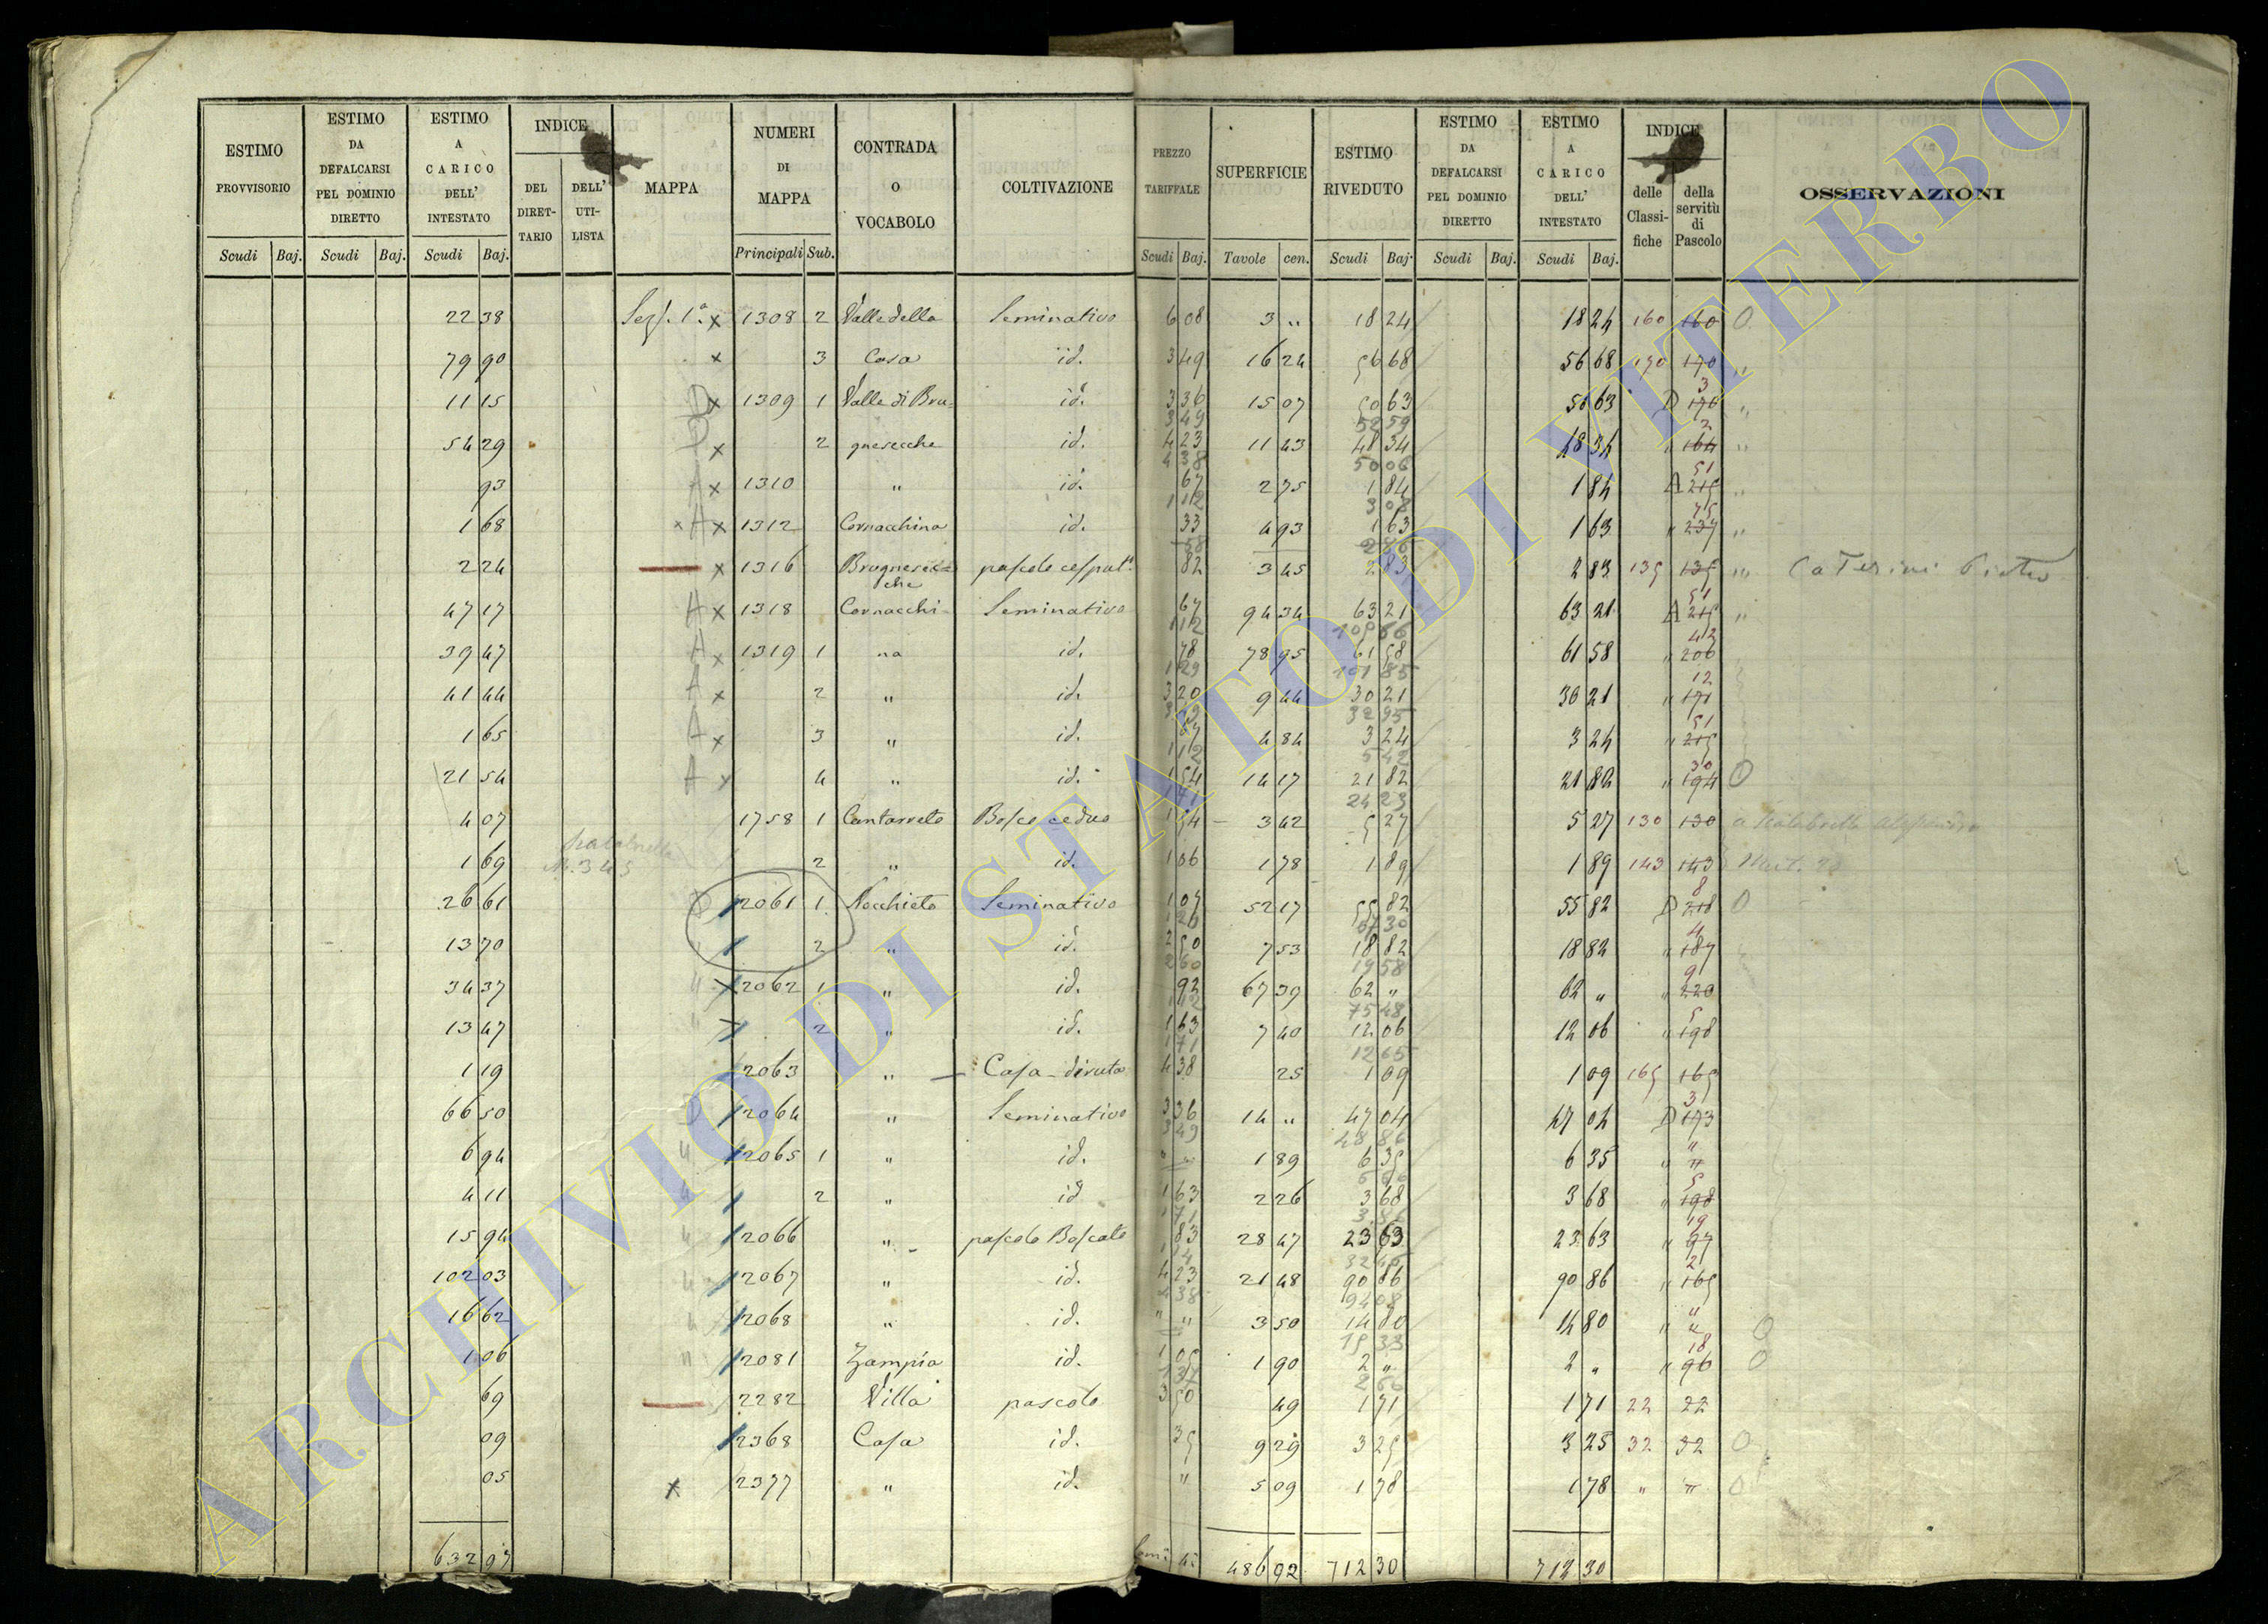 ESTIMO PROVVISORIO | ESTIMO DA DEFALCARSI PEL DOMINIO DIRETTO | ESTIMO A CARICO DELL' INTESTATO | INDICE DEL DIRETTARIO | DELL' UTILISTA | MAPPA | NUMERI DI MAPPA | CONTRADA O VOCABOLO | COLTIVAZIONE | PREZZO TARIFFALE | SUPERFICIE | ESTIMO RIVEDUTO | ESTIMO DA DEFALCARSI PEL DOMINIO DIRETTO | ESTIMO A CARICO DELL' INTESTATO | INDICE delle Classifiche | della servitù di Pascolo | OSSERVAZIONI
Scudi Baj. Scudi Baj. Scudi Baj. Principali Sub. Scudi Baj. Tavole cen. Scudi Baj. Scudi Baj. Scudi Baj.
22 38 Sez. 1a x 1308 2 Valle della Seminativo 6 08 3 " 18 24 18 24 160 160 O
79 90 x 3 Cosa id. 3 49 16 24 56 68 56 68 170 170 "
11 15 D x 1309 1 Valle di Bru= id. 3 36 15 07 50 63 50 63 D 3 "
3 49 52 59
54 29 D x 2 gnesecche id. 4 23 11 43 48 34 48 34 " 2 164 "
4 38 50 06
93 A x 1310 " id. 67 2 75 1 84 1 84 A 51 215 "
1 12 3 08
1 68 x A x 1312 Cornacchina id. 33 4 93 1 63 1 63 " 75 237 "
58 2 86
2 24 x 1316 Brugnesec= pascolo cespat. 82 3 45 2 83 2 83 135 135 " Caterini Pietro
che
47 17 A x 1318 Cornacchi- Seminativo 67 94 34 63 21 63 21 A 51 215 "
1 12 105 66
39 47 A x 1319 1 na id. 78 78 95 61 58 61 58 " 42 206
1 29 101 85
41 44 A x 2 " id. 3 20 9 44 30 21 30 21 " 12 171
32 95
1 65 A x 3 " id. 67 4 84 3 24 3 24 " 51 215
1 12 5 42
21 54 A x 4 " id. 1 54 14 17 21 82 21 82 " 30 194 O
24 23
4 07 1758 1 Cantarreto Bosco ceduo 1 54 3 42 5 27 5 27 130 130
1 69 N. 345 2 " id. 1 06 1 78 1 89 1 89 143 143
26 61 D 2061 1 Nocchieto Seminativo 1 07 52 17 55 82 55 82 D 8 218 O
13 70 " 2 " id. 2 50 7 53 18 82 18 82 " 4 187
2 60 19 58
34 37 " 2062 1 " id. 92 67 39 62 " 62 " " 9 220
1 12 75 48
13 47 " 2 " id. 1 63 7 40 12 06 12 06 " 5 198
1 71 12 65
1 19 2063 " Casa diruta 4 38 25 1 09 1 09 165 165
66 50 D 2064 " Seminativo 3 36 14 " 47 04 47 04 D 3 173
3 49 48 86
6 94 " 2065 1 " id. " " 1 89 6 35 6 35 " "
4 11 " 2 " id 1 63 2 26 3 68 3 68 " 5 198
1 71
15 94 " 2066 " pascolo Boscato 83 28 47 23 63 23 63 " 19 97
102 03 " 2067 " id. 4 23 21 48 90 86 90 86 " 2 165
4 38 94 08
16 62 " 2068 " id. " " 3 50 14 80 14 80 " " O
15 33
1 06 " 2081 Zampia id. 1 05 1 90 2 " 2 " " 18 96 O
69 2282 Villa pascolo 3 50 49 1 71 1 71 22 22
09 2368 Casa id. 35 9 29 3 25 3 25 32 32 O
05 x 2377 " id. " 5 09 1 78 1 78 " " O
632 97 486 92 712 30 712 30
ARCHIVIO DI STATO DI VITERBO